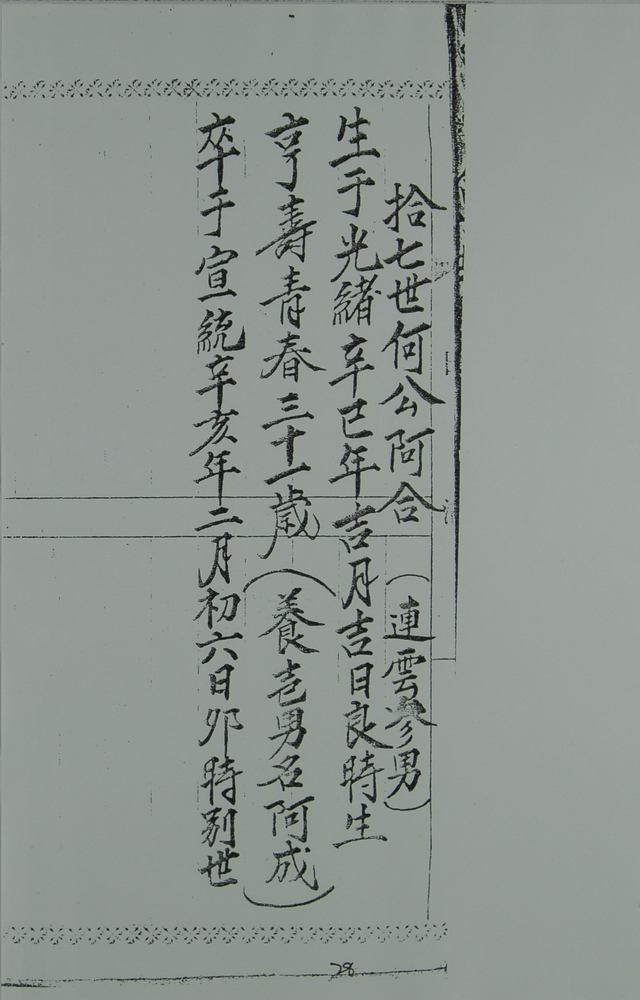 拾七世何公阿合（連雲參男）
生于光緒辛巳年吉月吉日良時生
亨壽青春三十一歲（養壱男名阿成）
卒于宣統辛亥年二月初六日夘時别世
28